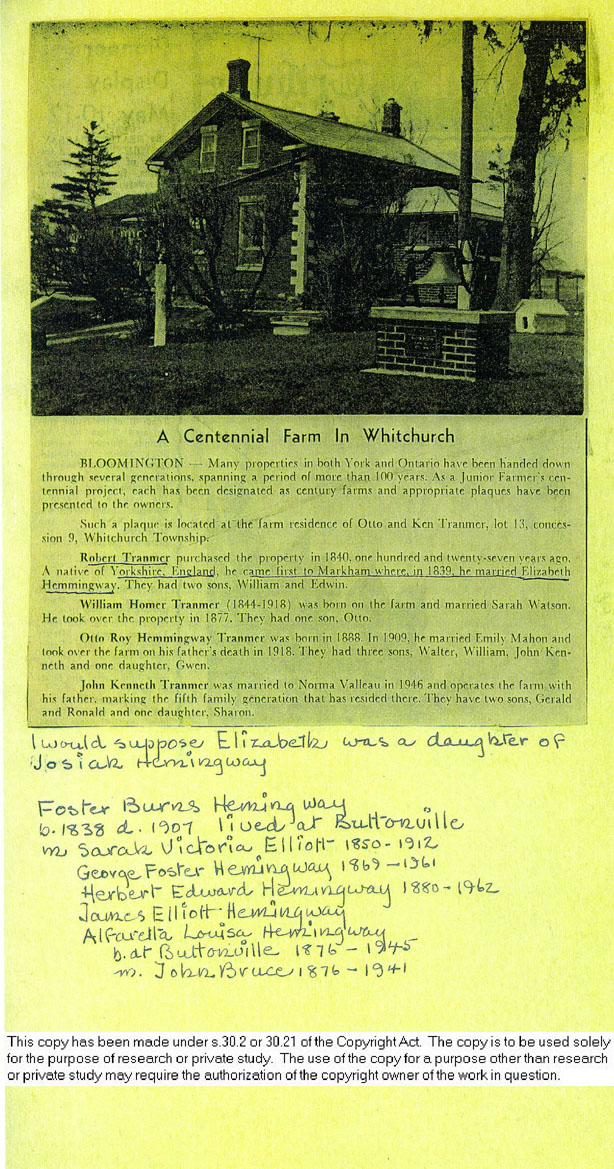 A Centennial Farm In Whitchurch
BLOOMINGTON — Many properties in both York and Ontario have been handed down
through several generations, spanning a period of more than 100 years. As a Junior Farmer's cen-
tennial project, each has been designated as century farms and appropriate plaques have been
presented to the owners.
Such a plaque is located at the farm residence of Otto and Ken Tranmer, lot 13, conces-
sion 9, Whitchurch Township.
Robert Tranmer purchased the property in 1840, one hundred and twenty-seven years ago.
A native of Yorkshire, England, he came first to Markham where, in 1839, he married Elizabeth
Hemmingway. They had two sons, William and Edwin.
William Homer Tranmer (1844-1918) was born on the farm and married Sarah Watson.
He took over the property in 1877. They had one son, Otto.
Otto Roy Hemmingway Tranmer was born in 1888. In 1909, he married Emily Mahon and
took over the farm on his father's death in 1918. They had three sons, Walter, William, John Ken-
neth and one daughter, Gwen.
John Kenneth Tranmer was married to Norma Valleau in 1946 and operates the farm with
his father, marking the fifth family generation that has resided there. They have two sons, Gerald
and Ronald and one daughter, Sharon.
I would suppose Elizabeth was a daughter of
Josiah Hemingway
Foster Burns Hemingway
b. 1838 d. 1907 lived at Buttonville
m Sarah Victoria Elliott 1850-1912
George Foster Hemingway 1869-1961
Herbert Edward Hemingway 1880-1962
James Elliott Hemingway
Alfaretta Louisa Hemingway
b. at Buttonville 1876-1945
m. John Bruce 1876-1941
This copy has been made under s.30.2 or 30.21 of the Copyright Act. The copy is to be used solely
for the purpose of research or private study. The use of the copy for a purpose other than research
or private study may require the authorization of the copyright owner of the work in question.